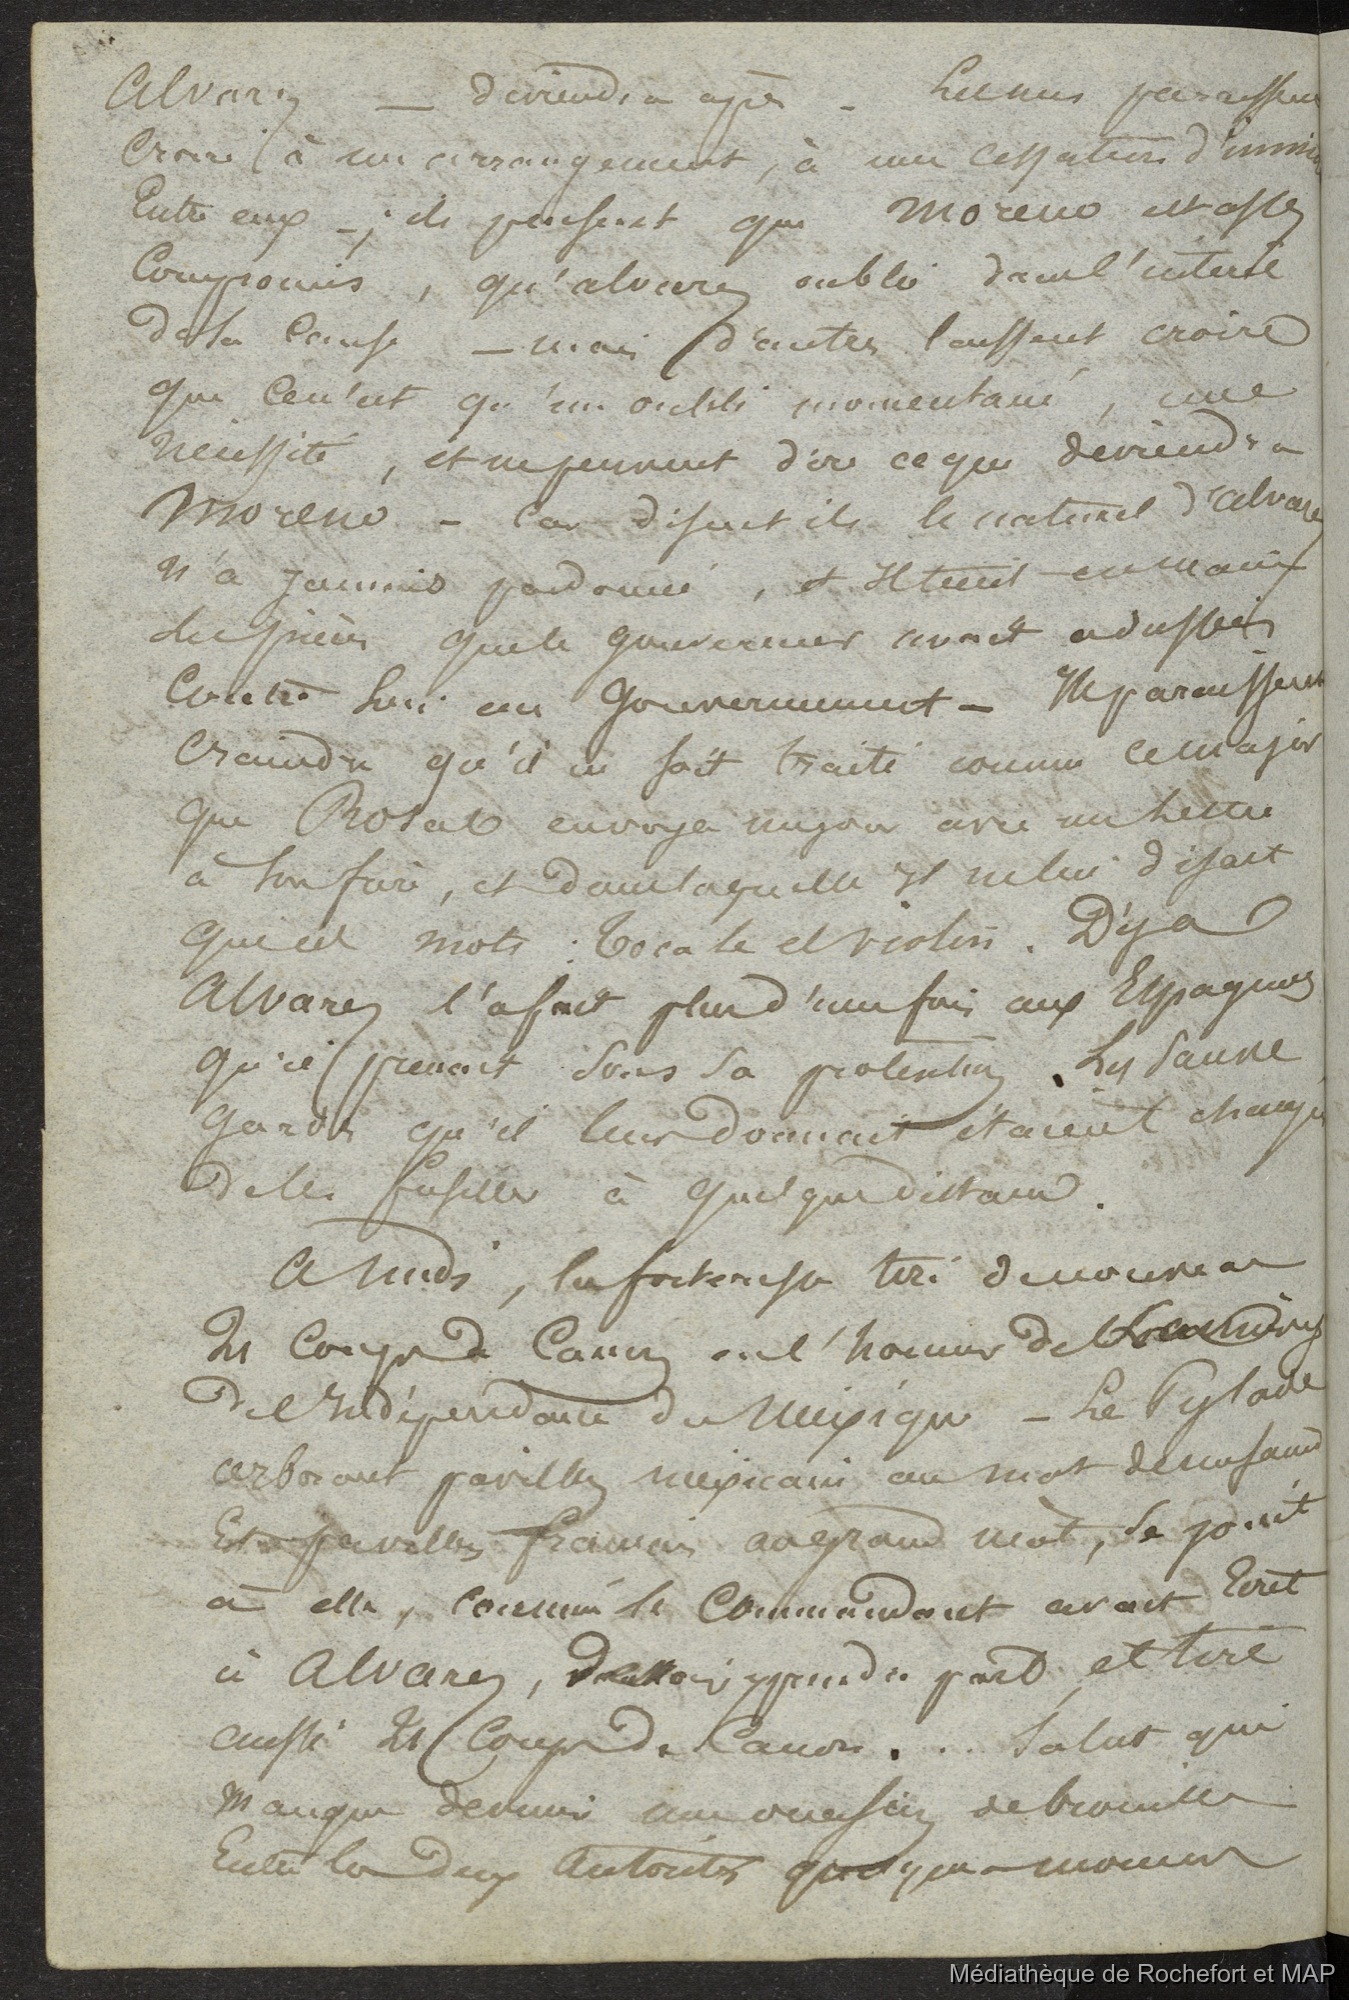 Alvarez — deviendra après - Les uns paraissent
croire à un arrangement, à une cessation d'inimi
Entre eux -; ils pensent que Moreno est assez
Compromis, qu'alvarez oublie dans l'intérêt
de la cause — mais d'autres laissent croire
que ce n'est qu'un oubli momentané, une
nécessité, et ne peuvent dire ce que deviendra
Moreno - Car disent ils le naturel d'alvarez
n'a jamais pardonné, et Il tient en main
des pièces que le gouverneur avait adressées
Contre lui au Gouvernement - Ils paraissent
craindre qu'il ne soit traité comme ce major
que Rosas envoya un jour avec une lettre
à son frère, et dans laquelle il ne lui disait
que ces mots : Tocale el violin. Déja
Alvarez l'a fait plus d'une fois aux Espagnols
qu'il prenait sous sa protection. Les Sauve
Gardes qu'il leur donnait étaient chargés
de les fusiller à quelque distance.
A midi, la forteresse tire de nouveau
21 Coups de Canon en l'honneur de
de l'Indépendance du Mexique - Le Pylade
arborant pavillon mexicain au mat de misaine
Et pavillon français au grand mât, se joint
à elle, comme le Commandant avait écrit
à Alvarez, prendre part et tire
aussi 21 Coups de Canon. .. Salut qui
manqua devenir une occasion de brouille
Entre les deux Autorités quelques moments
Médiathèque de Rochefort et MAP